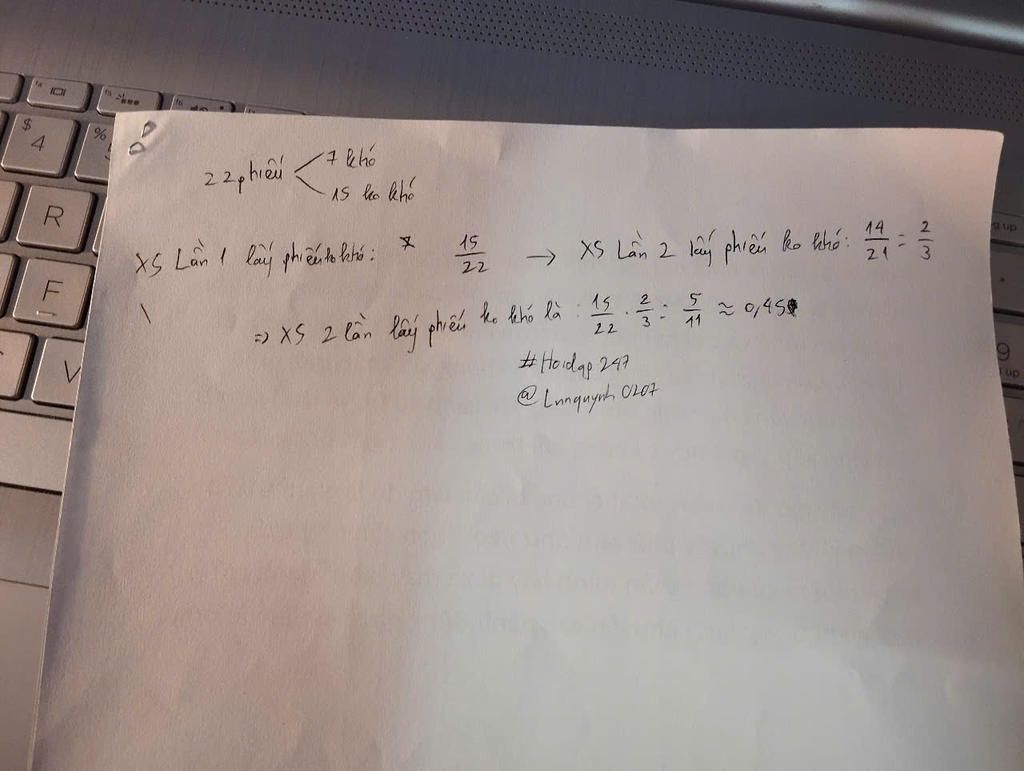 22 phiếu 7 khó
15 ko khó
XS Lần 1 lấy phiếu ko khó: 15/22 → XS Lần 2 lấy phiếu ko khó: 14/21 = 2/3
=> XS 2 lần lấy phiếu ko khó là : 15/22 . 2/3 = 5/11 ≈ 0,45
#Hoidap247
@Lnnquynh0207
$
4
%
R
F
V
9